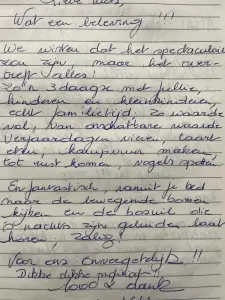 Lieve
Wat een beleving !!!
We wisten dat het spectaculair
zou zijn, maar het over-
treft alles!
Zo'n 3daagse met jullie,
kinderen en kleinkinderen,
echt familietijd, zo waarde
vol, van onschatbare waarde
Verjaardagen vieren, taart
eten, kampvuur maken,
tot rust komen, vogels spotten
En fantastisch, vanuit je bed
naar de bewegende bomen
kijken en de bosuil die
's nachts zijn geluiden laat
horen, zalig!
Voor ons Onvergetelijk !!
Dikke dikke
1000 x dank